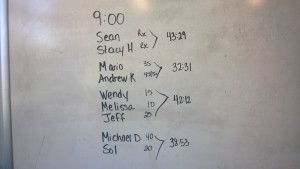 9:00
Sean Rx
Stacy H. Rx 43:29
Mario 35
Andrew R 32:31
Wendy 15
Melissa 10 42:12
Jeff 25
Michael D. 40
Sol 20 38:53